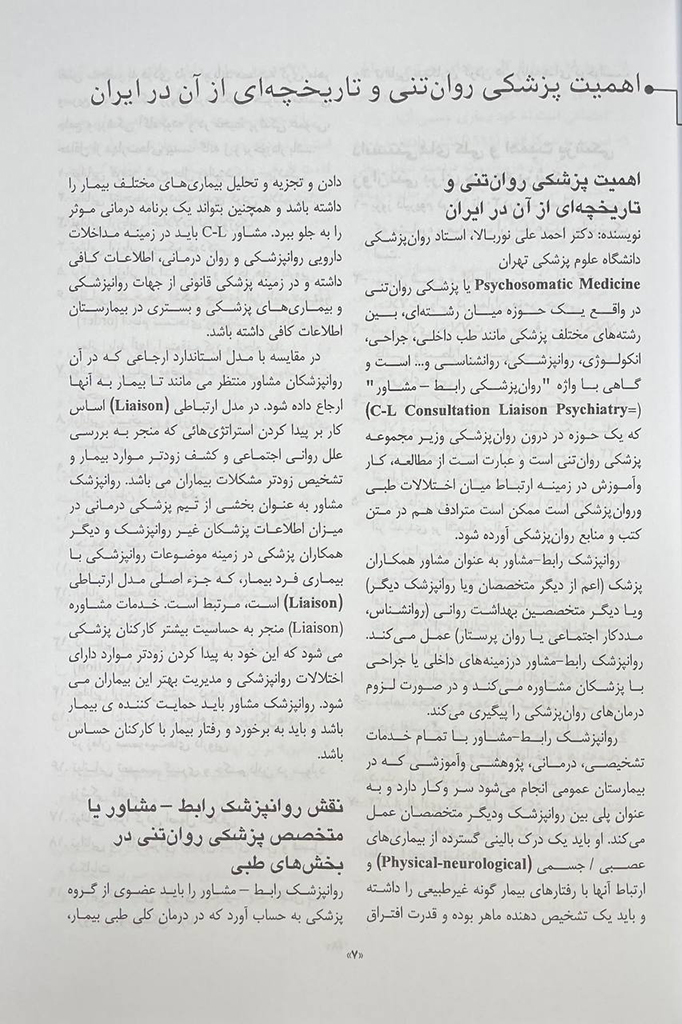 اهمیت پزشکی روان‌تنی و تاریخچه‌ای از آن در ایران
اهمیت پزشکی روان‌تنی و
تاریخچه‌ای از آن در ایران
نویسنده: دکتر احمد علی نوربالا، استاد روان‌پزشکی
دانشگاه علوم پزشکی تهران
Psychosomatic Medicine یا پزشکی روان‌تنی
در واقع یک حوزه میان رشته‌ای، بین
رشته‌های مختلف پزشکی مانند طب داخلی، جراحی،
انکولوژی، روانپزشکی، روانشناسی و... است و
گاهی با واژه "روان‌پزشکی رابط – مشاور"
(=C-L Consultation Liaison Psychiatry)
که یک حوزه در درون روان‌پزشکی وزیر مجموعه
پزشکی روان‌تنی است و عبارت است از مطالعه، کار
وآموزش در زمینه ارتباط میان اختلالات طبی
وروان‌پزشکی است ممکن است مترادف هم در متن
کتب و منابع روان‌پزشکی آورده شود.
روانپزشک رابط–مشاور به عنوان مشاور همکاران
پزشک (اعم از دیگر متخصصان ویا روانپزشک دیگر)
ویا دیگر متخصصین بهداشت روانی (روانشناس،
مددکار اجتماعی یا روان پرستار) عمل می‌کند.
روانپزشک رابط–مشاور درزمینه‌های داخلی یا جراحی
با پزشکان مشاوره می‌کند و در صورت لزوم
درمان‌های روان‌پزشکی را پیگیری می‌کند.
روانپزشک رابط–مشاور با تمام خدمات
تشخیصی، درمانی، پژوهشی وآموزشی که در
بیمارستان عمومی انجام می‌شود سر وکار دارد و به
عنوان پلی بین روانپزشک ودیگر متخصصان عمل
می‌کند. او باید یک درک بالینی گسترده از بیماری‌های
عصبی / جسمی (Physical-neurological) و
ارتباط آنها با رفتارهای بیمار گونه غیرطبیعی را داشته
و باید یک تشخیص دهنده ماهر بوده و قدرت افتراق
دادن و تجزیه و تحلیل بیماری‌های مختلف بیمار را
داشته باشد و همچنین بتواند یک برنامه درمانی موثر
را به جلو ببرد. مشاور C-L باید در زمینه مداخلات
دارویی روانپزشکی و روان درمانی، اطلاعات کافی
داشته و در زمینه پزشکی قانونی از جهات روانپزشکی
و بیماری‌های پزشکی و بستری در بیمارستان
اطلاعات کافی داشته باشد.
در مقایسه با مدل استاندارد ارجاعی که در آن
روانپزشکان مشاور منتظر می مانند تا بیمار به آنها
ارجاع داده شود. در مدل ارتباطی (Liaison) اساس
کار بر پیدا کردن استراتژی‌هائی که منجر به بررسی
علل روانی اجتماعی و کشف زودتر موارد بیمار و
تشخیص زودتر مشکلات بیماران می باشد. روانپزشک
مشاور به عنوان بخشی از تیم پزشکی درمانی در
میزان اطلاعات پزشکان غیر روانپزشک و دیگر
همکاران پزشکی در زمینه موضوعات روانپزشکی با
بیماری فرد بیمار، که جزء اصلی مدل ارتباطی
(Liaison) است، مرتبط است. خدمات مشاوره
(Liaison) منجر به حساسیت بیشتر کارکنان پزشکی
می شود که این خود به پیدا کردن زودتر موارد دارای
اختلالات روانپزشکی و مدیریت بهتر این بیماران می
شود. روانپزشک مشاور باید حمایت کننده ی بیمار
باشد و باید به برخورد و رفتار بیمار با کارکنان حساس
باشد.
نقش روانپزشک رابط – مشاور یا
متخصص پزشکی روان‌تنی در
بخش‌های طبی
روانپزشک رابط – مشاور را باید عضوی از گروه
پزشکی به حساب آورد که در درمان کلی طبی بیمار،
«۷»